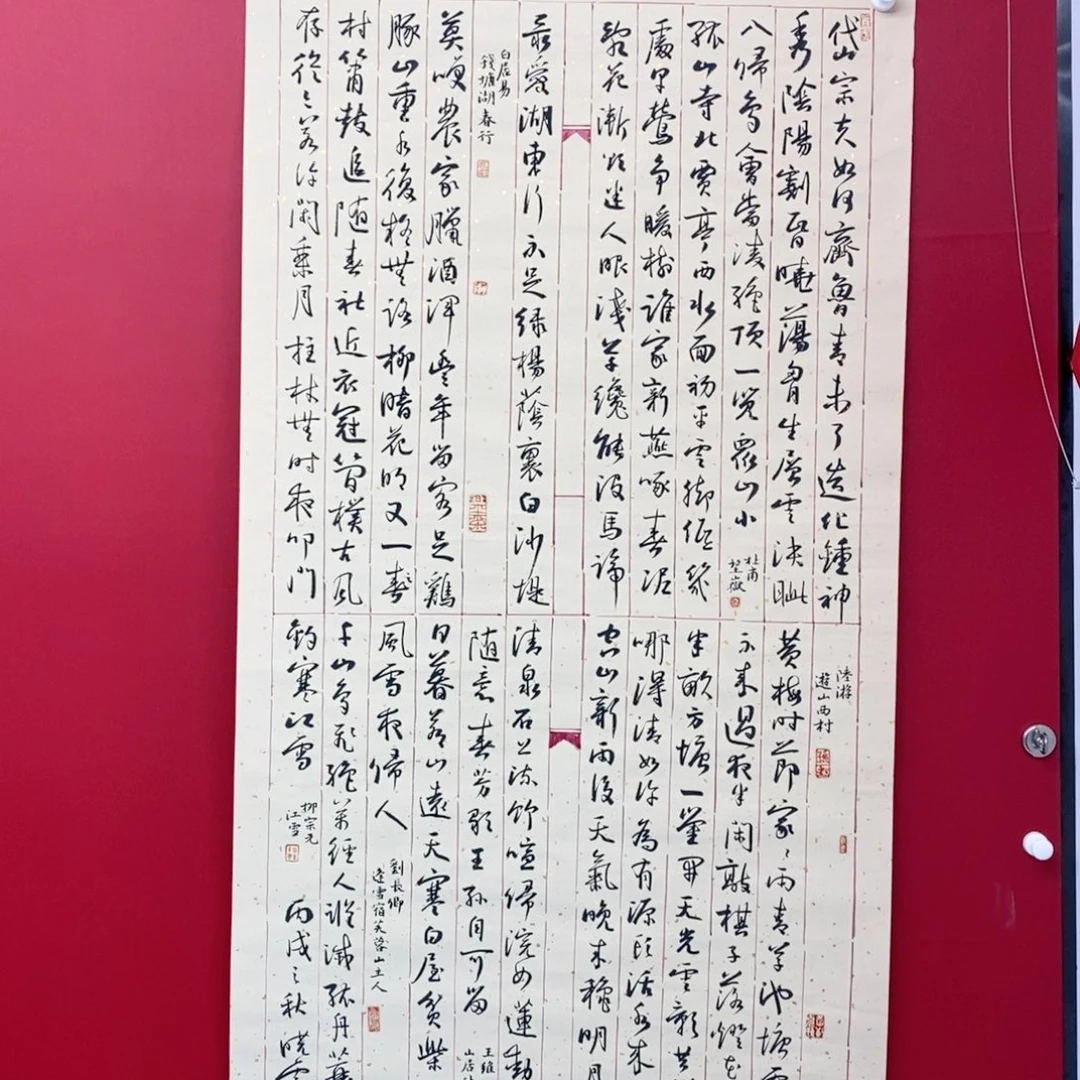 岱宗夫如何齊魯青未了造化鍾神
秀陰陽割昏曉蕩胷生層雲決眥
入歸鳥會當凌絕頂一覽眾山小
杜甫
望嶽
孤山寺北賈亭西水面初平雲腳低幾
處早鶯爭暖樹誰家新燕啄春泥
亂花漸欲迷人眼淺草纔能沒馬蹄
最愛湖東行不足綠楊蔭裏白沙堤
白居易
錢塘湖春行
莫咲農家臘酒渾豐年留客足雞
豚山重水復疑無路柳暗花明又一
村簫鼓追隨春社近衣冠簡樸古風
存從今若許閑乘月拄杖無時夜叩門
陸游
遊山西村
黃梅時節家〻雨青草池塘處
不來過夜半閑敲棋子落燈花
半畝方塘一鑒開天光雲影共
哪得清如許為有源頭活水來
空山新雨後天氣晚來穐明月
清泉石上流竹喧歸浣女蓮動
隨意春芳歇王孫自可留
王維
山居
日暮蒼山遠天寒白屋貧柴
風雪夜歸人
劉長卿
逢雪宿芙蓉山主人
千山鳥飛絕萬徑人蹤滅孤舟蓑
釣寒江雪
柳宗元
江雪
丙戌之秋曉